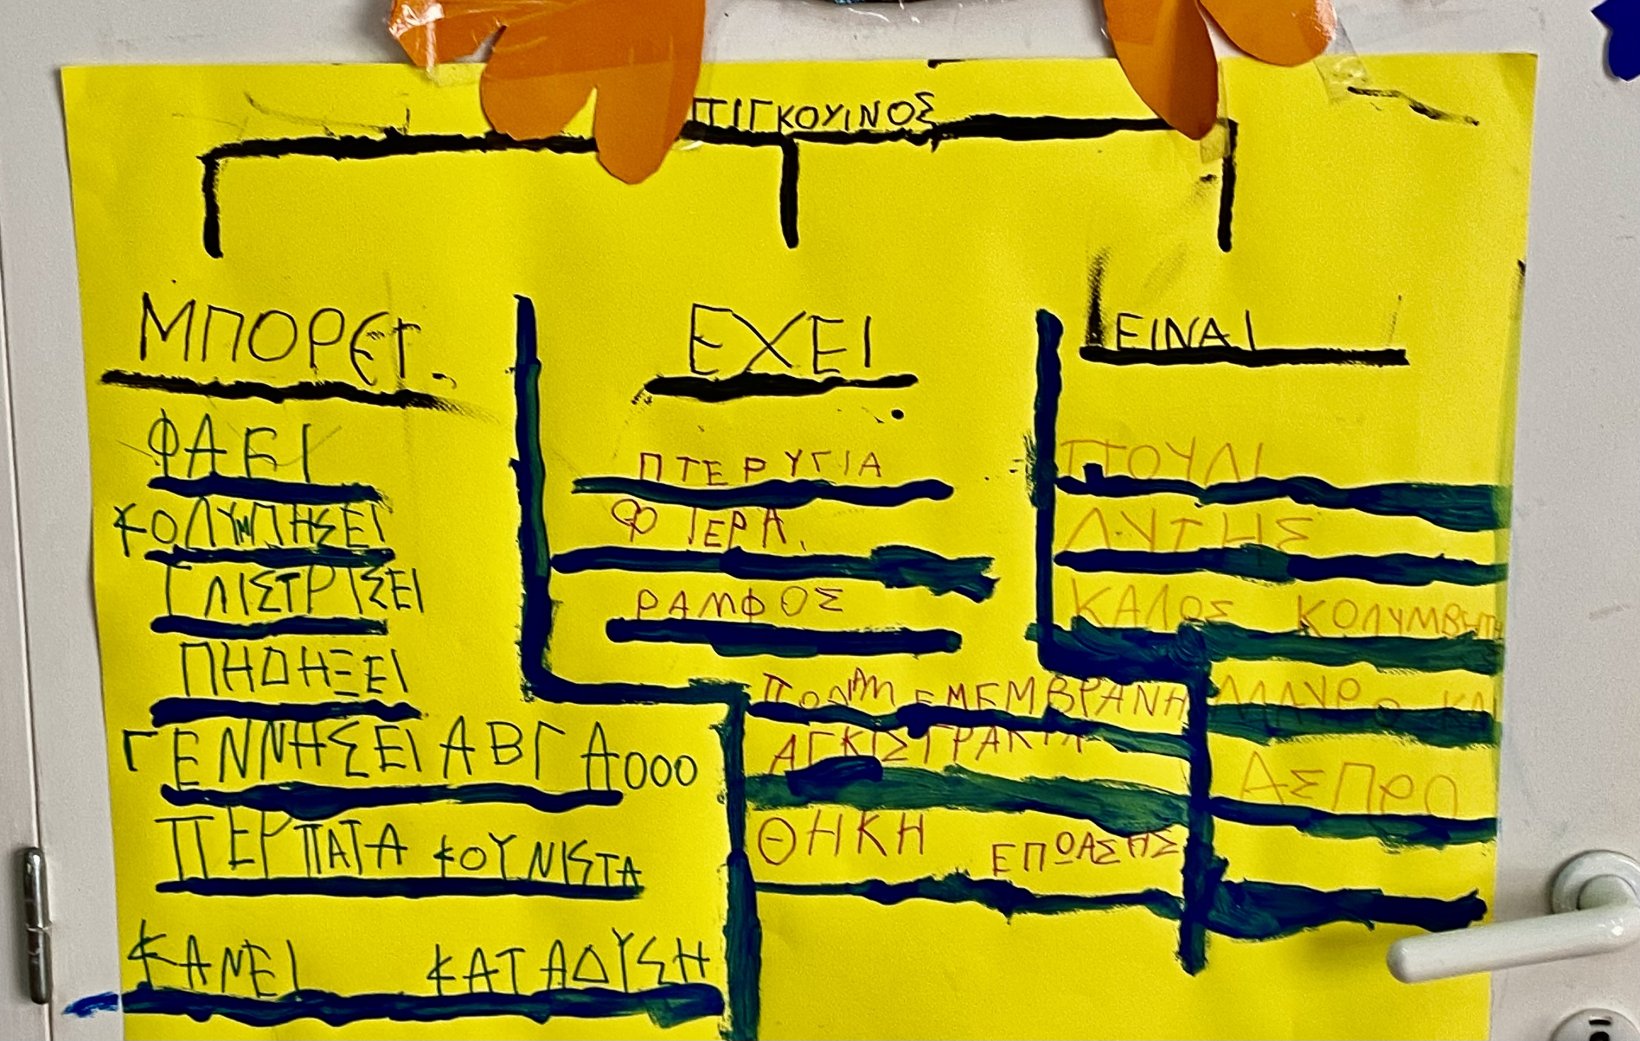 ΠΙΓΚΟΥΙΝΟΣ
ΜΠΟΡΕΙ
ΦΑΕΙ
ΚΟΛΥΜΠΗΣΕΙ
ΓΛΙΣΤΡΙΣΕΙ
ΠΗΔΗΞΕΙ
ΓΕΝΝΗΣΕΙ ΑΒΓΑ000
ΠΕΡΠΑΤΑ ΚΟΥΝΙΣΤΑ
ΚΑΝΕΙ ΚΑΤΑΔΥΣΗ
ΕΧΕΙ
ΠΤΕΡΥΓΙΑ
ΦΤΕΡΑ
ΡΑΜΦΟΣ
ΜΕΜΒΡΑΝΗ
ΑΓΚΙΣΤΡΑΚΙΑ
ΘΗΚΗ ΕΠΩΑΣΗΣ
ΕΙΝΑΙ
ΠΟΥΛΙ
ΔΥΤΗΣ
ΚΑΛΟΣ ΚΟΛΥΜΒΗΤΗ
ΜΑΥΡΟ ΚΑΙ
ΑΣΠΡΟ